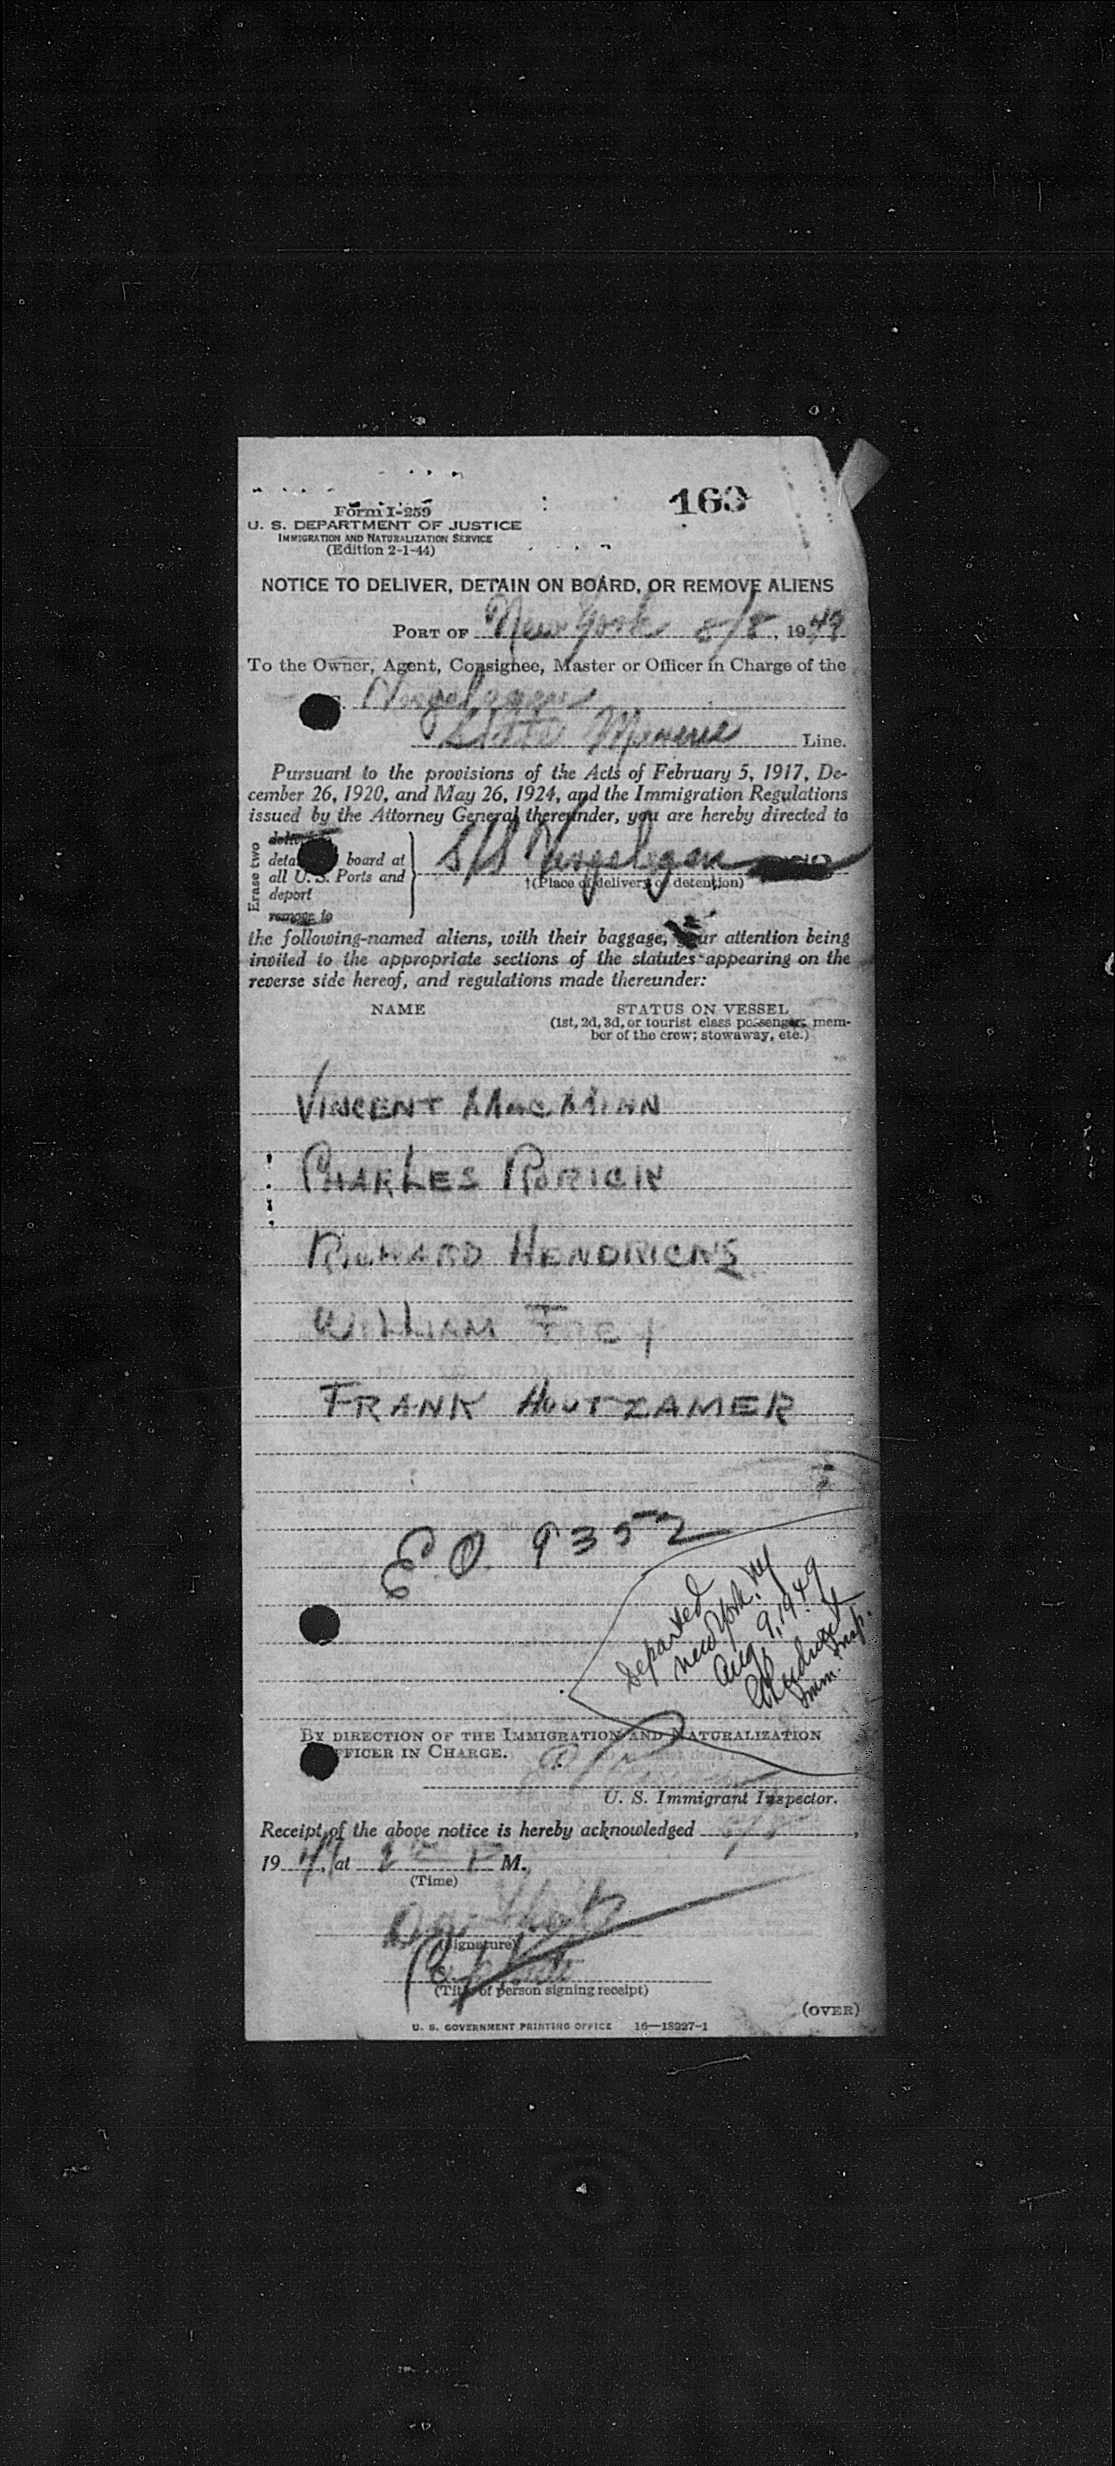 163
Form I-259
U. S. DEPARTMENT OF JUSTICE
IMMIGRATION AND NATURALIZATION SERVICE
(Edition 2-1-44)
NOTICE TO DELIVER, DETAIN ON BOARD, OR REMOVE ALIENS
PORT OF New York 8/8, 1949
To the Owner, Agent, Consignee, Master or Officer in Charge of the
State Line.
Pursuant to the provisions of the Acts of February 5, 1917, De-
cember 26, 1920, and May 26, 1924, and the Immigration Regulations
issued by the Attorney General thereunder, you are hereby directed to
Erase two
board at S/S
all U. S. Ports and
†(Place of delivery or detention)
deport
remove to
the following-named aliens, with their baggage, your attention being
invited to the appropriate sections of the statutes appearing on the
reverse side hereof, and regulations made thereunder:
NAME STATUS ON VESSEL
(1st, 2d, 3d, or tourist class passenger, mem-
ber of the crew; stowaway, etc.)
VINCENT
CHARLES RORICK
RICHARD HENDRICKS
WILLIAM FREY
FRANK HOUTZAMER
E.O. 9352
Departed
New York, NY
Aug 9, 1949
Imm. Insp.
BY DIRECTION OF THE IMMIGRATION AND NATURALIZATION
OFFICER IN CHARGE.
U. S. Immigrant Inspector.
Receipt of the above notice is hereby acknowledged 8/8,
1949, at P M.
(Time)
(Signature)
(Title of person signing receipt)
(OVER)
U. S. GOVERNMENT PRINTING OFFICE 16—18227-1